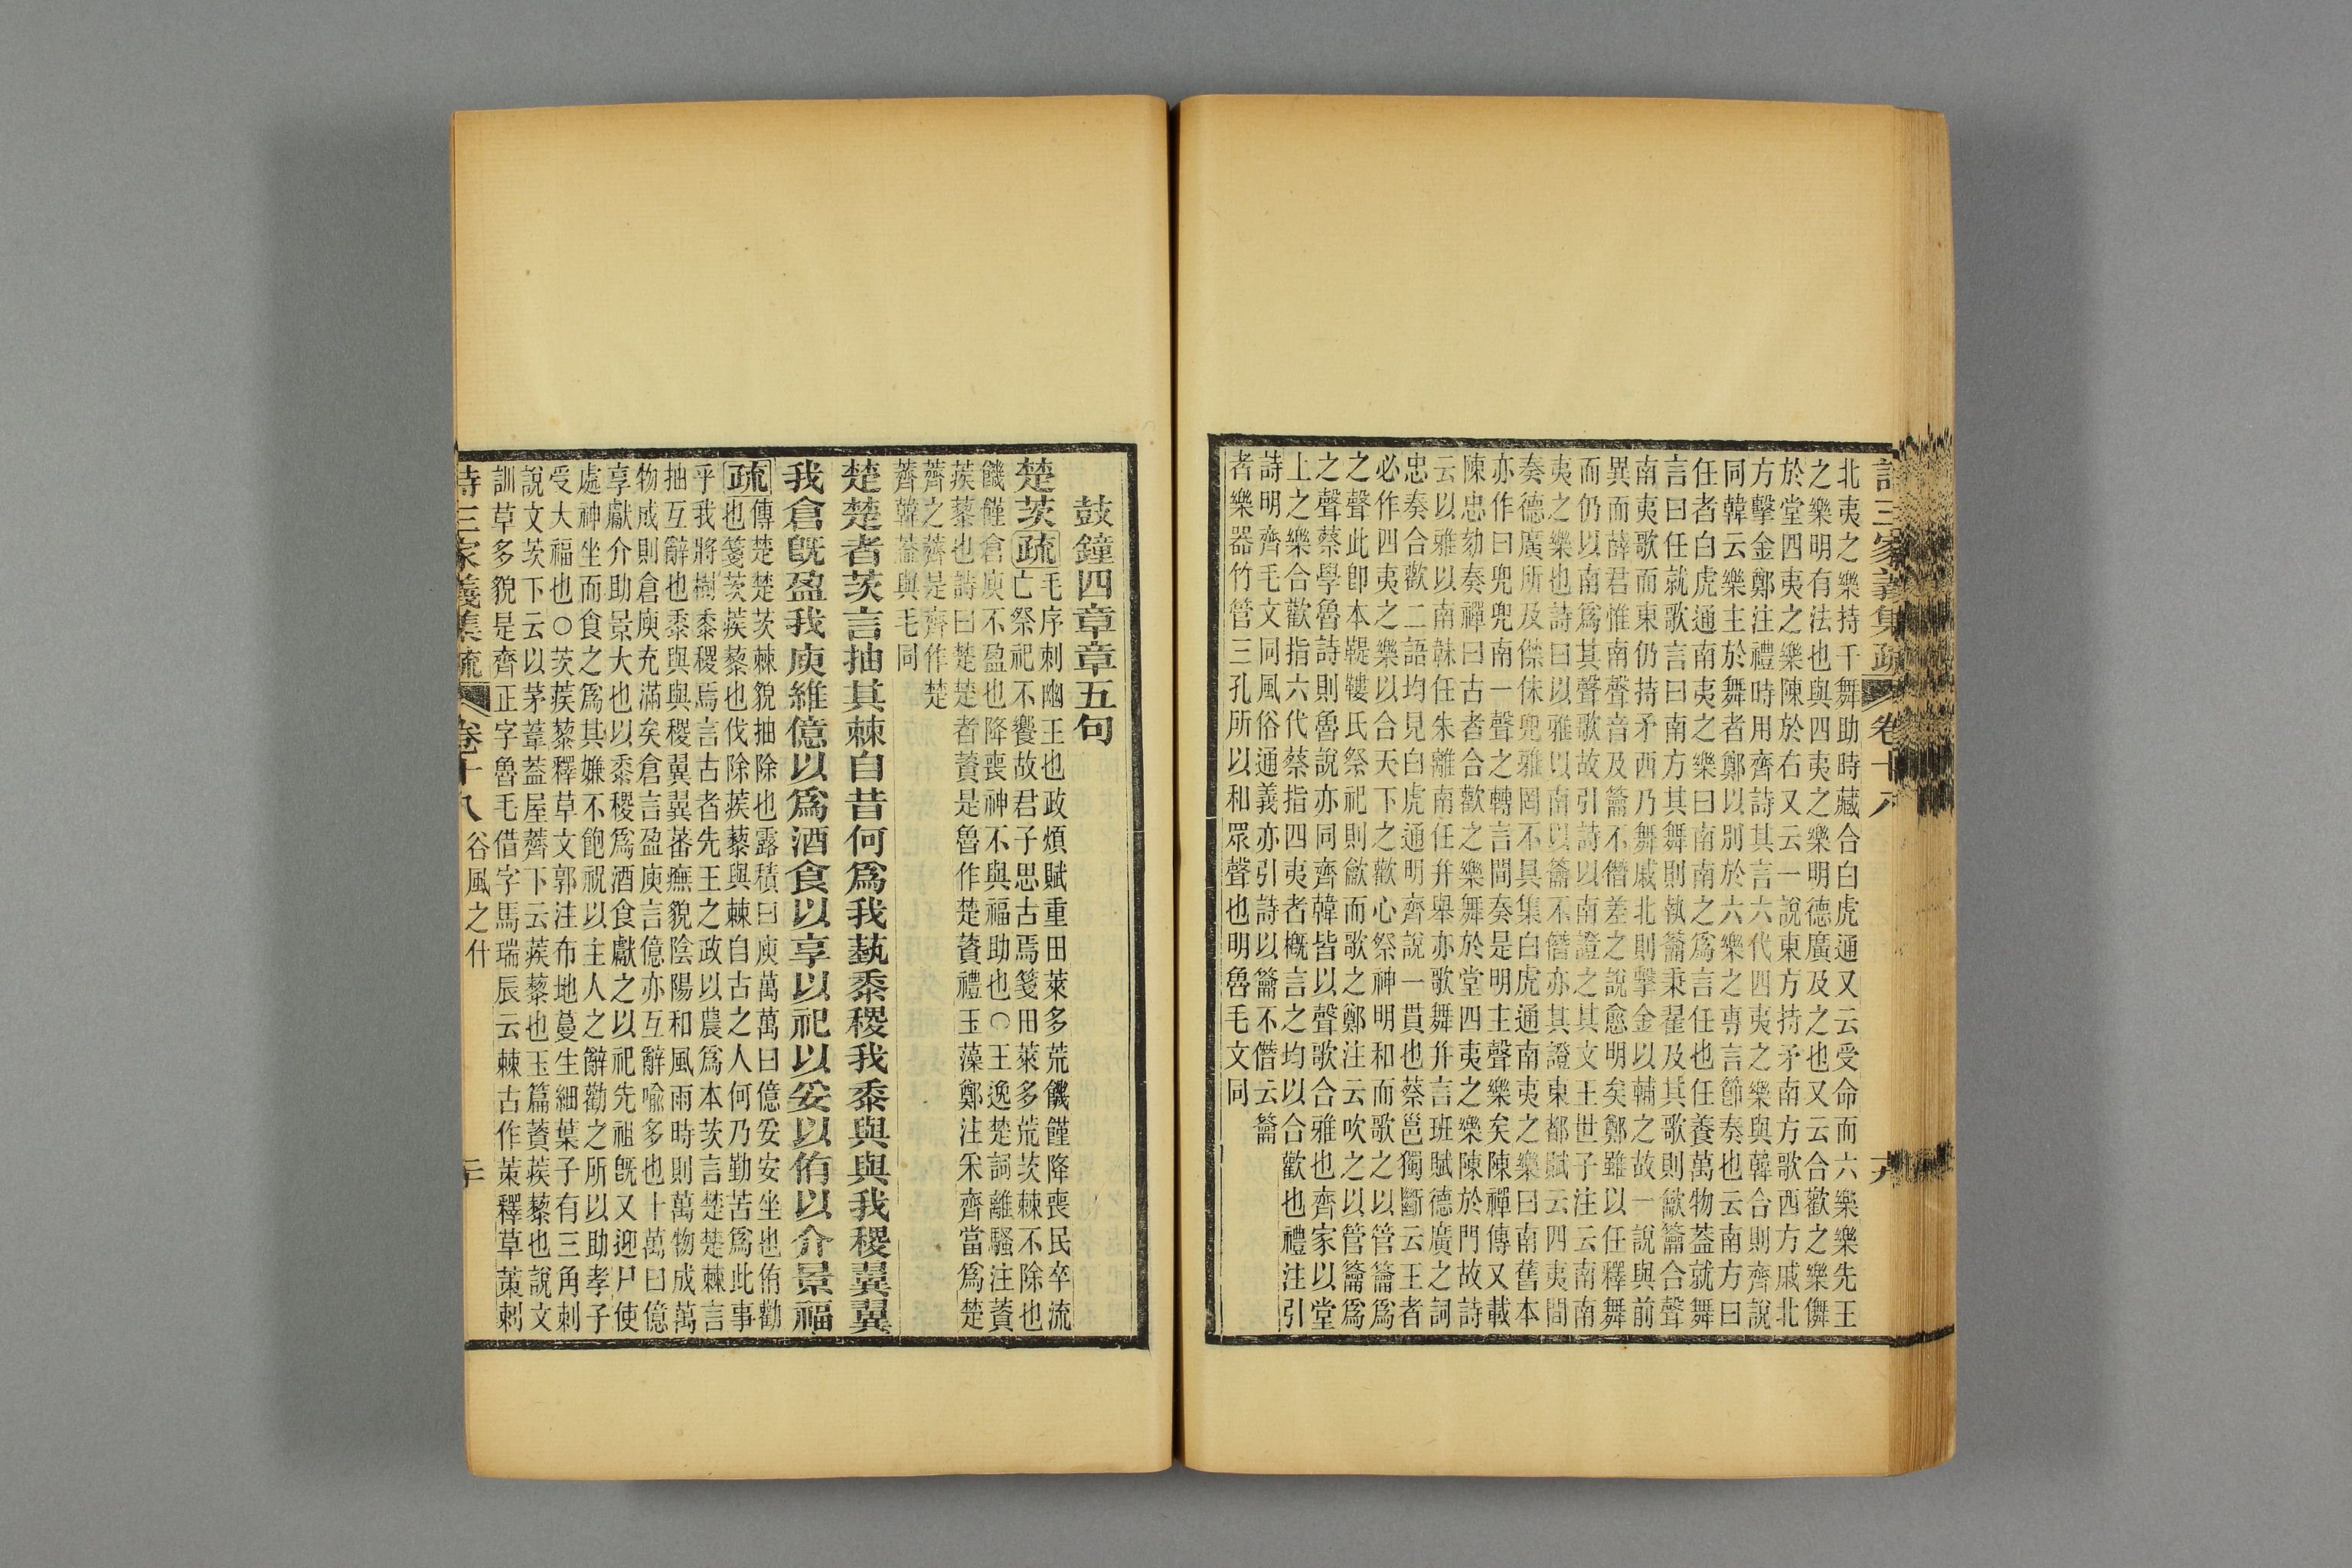 詩三家義集疏 卷十八 十九
北夷之樂持干舞助時藏合白虎通又云受命而六樂樂先王
之樂明有法也與四夷之樂明德廣及之也又云合歡之樂儛
於堂四夷之樂陳於右又云一說東方持矛南方歌西方戚北
方擊金鄭注禮時用齊詩其言六代四夷之樂與韓合則齊說
同韓云樂主於舞者鄭以別於六樂之專言節奏也云南方曰
任者白虎通南夷之樂曰南南之爲言任也任養萬物蓋就舞
言曰任就歌言曰南方其舞則執籥秉翟及其歌則歈籥合聲
南夷歌而東仍持矛西乃舞戚北則擊金以輔之故一說與前
異而薛君惟南聲音及籥不僭差之說愈明矣鄭雖以任釋舞
而仍以南爲其聲歌故引詩以南證之其文王世子注云南南
夷之樂也詩曰以雅以南以籥不僭亦其證東都賦云四夷間
奏德廣所及傑佅兜雅罔不具集白虎通南夷之樂曰南舊本
亦作曰兜兜南一聲之轉言間奏是明主聲樂矣陳禪傳又載
陳忠劾奏禪曰古者合歡之樂舞於堂四夷之樂陳於門故詩
云以雅以南韎任朱離南任幷舉亦歌舞幷言班賦德廣之詞
忠奏合歡二語均見白虎通明齊說一貫也蔡邕獨斷云王者
必作四夷之樂以合天下之歡心祭神明和而歌之以管籥爲
之聲此卽本鞮鞻氏祭祀則歈而歌之鄭注云吹之以管籥爲
之聲蔡學魯詩則魯說亦同齊韓皆以聲歌合雅也齊家以堂
上之樂合歡指六代蔡指四夷者槪言之均以合歡也禮注引
詩明齊毛文同風俗通義亦引詩以籥不僭云籥
者樂器竹管三孔所以和眾聲也明魯毛文同
鼓鐘四章章五句
楚茨疏毛序刺幽王也政煩賦重田萊多荒饑饉降喪民卒流
亡祭祀不饗故君子思古焉箋田萊多荒茨棘不除也
饑饉倉庾不盈也降喪神不與福助也○王逸楚詞離騷注薋
蒺藜也詩曰楚楚者薋是魯作楚薋禮玉藻鄭注采齊當爲楚
薺之薺是齊作楚
薺韓蓋與毛同
楚楚者茨言抽其棘自昔何爲我蓺黍稷我黍與與我稷翼翼
我倉旣盈我庾維億以爲酒食以享以祀以妥以侑以介景福
疏傳楚楚茨棘貌抽除也露積曰庾萬萬曰億妥安坐也侑勸
也箋茨蒺藜也伐除蒺藜與棘自古之人何乃勤苦爲此事
乎我將樹黍稷焉言古者先王之政以農爲本茨言楚楚棘言
抽互辭也黍與與稷翼翼蕃廡貌陰陽和風雨時則萬物成萬
物成則倉庾充滿矣倉言盈庾言億亦互辭喻多也十萬曰億
享獻介助景大也以黍稷爲酒食獻之以祀先祖旣又迎尸使
處神坐而食之爲其嫌不飽祝以主人之辭勸之所以助孝子
受大福也○茨蒺藜釋草文郭注布地蔓生細葉子有三角刺
說文茨下云以茅葦蓋屋薺下云蒺藜也玉篇薋蒺藜也說文
訓草多貌是齊正字魯毛借字馬瑞辰云棘古作茦釋草茦刺
詩三家義集疏 卷十八 谷風之什 二十